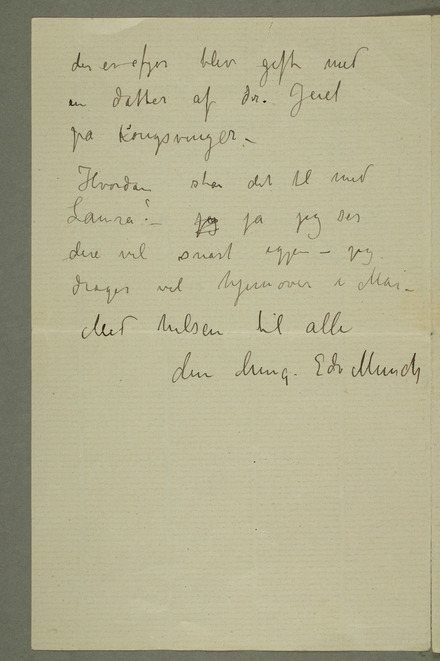 der erefjor blev gift med
en datter af Dr. Jeiel
på Kongsvinger.–
Hvordan står det til med
Laura?– jeg ja jeg ser
dere vel snart igjen – jeg
drager vel hjemover i Mai–
Med hilsen til alle
din heng. Edv Munch